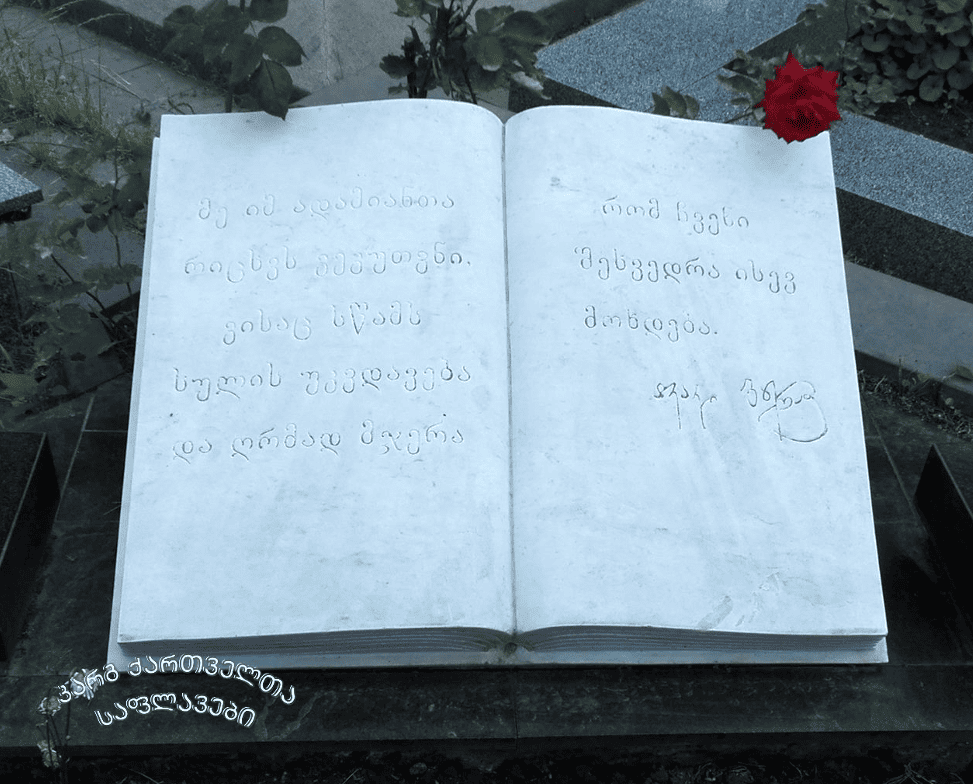 მე იმ ადამიანთა
რიცხვს ვეკუთვნი,
ვისაც სწამს
სულის უკვდავება
და ღრმად მჯერა
რომ ჩვენი
შეხვედრა ისევ
მოხდება.
კარგ ქართველთა
საფლავები